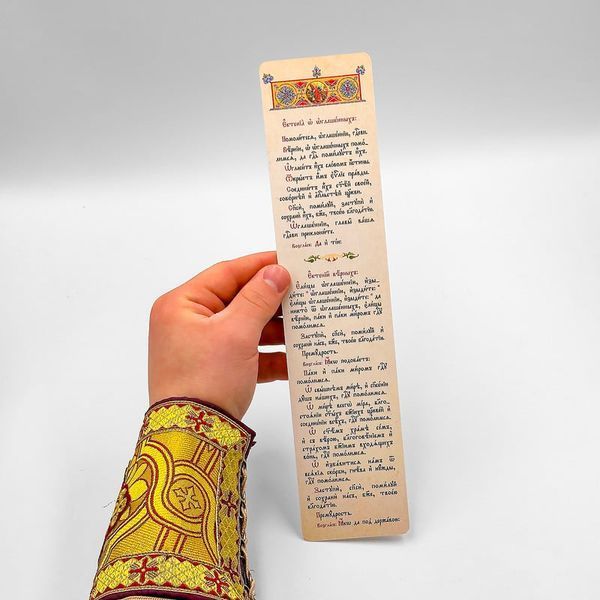 Є҆ктенїѧ̀ ѡ҆ ѡ҆глаше́нныхъ:
Помоли́тесѧ, ѡ҆глаше́ннїи, гдⷭ҇еви.
Вѣ́рнїи, ѡ҆ ѡ҆глаше́нныхъ помо́-
лимсѧ, да гдⷭ҇ь поми́лꙋетъ и҆̀хъ.
Ѡ҆гласи́тъ и҆̀хъ сло́вомъ и҆́стины.
Ѿкры́етъ и҆̀мъ є҆ѵⷢ҇лїе пра́вды.
Соедини́тъ и҆̀хъ ст҃ѣ́й свое́й,
собо́рнѣй и҆ а҆пⷭ҇льстѣй цр҃кви.
Сп҃сѝ, поми́лꙋй, застꙋпѝ и҆
сохранѝ и҆̀хъ, бж҃е, твое́ю блгⷣтїю.
Ѡ҆глаше́ннїи, главы̑ ва́шѧ
гдⷭ҇еви приклони́те.
Возгла́съ: Да и҆ ті́и:
Є҆ктенїѧ̀ вѣ́рныхъ:
Є҆ли́цы ѡ҆глаше́ннїи, и҆зы-
ди́те: ѡ҆глаше́ннїи, и҆зыди́те:
є҆ли́цы ѡ҆глаше́ннїи, и҆зыди́те: да
никто̀ ѿ ѡ҆глаше́нныхъ, є҆ли́цы
вѣ́рнїи, па́ки и҆ па́ки ми́ромъ гдⷭ҇ꙋ
помо́лимсѧ.
Застꙋпѝ, сп҃сѝ, поми́лꙋй и҆
сохранѝ на́съ, бж҃е, твое́ю блгⷣтїю.
Премꙋ́дрость.
Возгла́съ: Ꙗ҆́кѡ подоба́етъ:
Па́ки и҆ па́ки ми́ромъ гдⷭ҇ꙋ
помо́лимсѧ.
Ѡ҆ свы́шнѣмъ ми́рѣ, и҆ спⷭ҇нїи
дꙋ́шъ на́шихъ, гдⷭ҇ꙋ помо́лимсѧ.
Ѡ҆ ми́рѣ всегѡ̀ мі́ра, бл҃го-
стоѧ́нїи ст҃ы́хъ бж҃їихъ цр҃кве́й и҆
соедине́нїи всѣ́хъ, гдⷭ҇ꙋ помо́лимсѧ.
Ѡ҆ ст҃ѣ́мъ хра́мѣ се́мъ,
и҆ съ вѣ́рою, бл҃гоговѣ́нїемъ и҆
стра́хомъ бж҃їимъ входѧ́щихъ
во́нь, гдⷭ҇ꙋ помо́лимсѧ.
Ѡ҆ и҆зба́витисѧ на́мъ ѿ
всѧ́кїѧ ско́рби, гнѣ́ва и҆ нꙋ́жды,
гдⷭ҇ꙋ помо́лимсѧ.
Застꙋпѝ, сп҃сѝ, поми́лꙋй
и҆ сохранѝ на́съ, бж҃е, твое́ю
блгⷣтїю.
Премꙋ́дрость.
Возгла́съ: Ꙗ҆́кѡ да под̾ держа́вою: